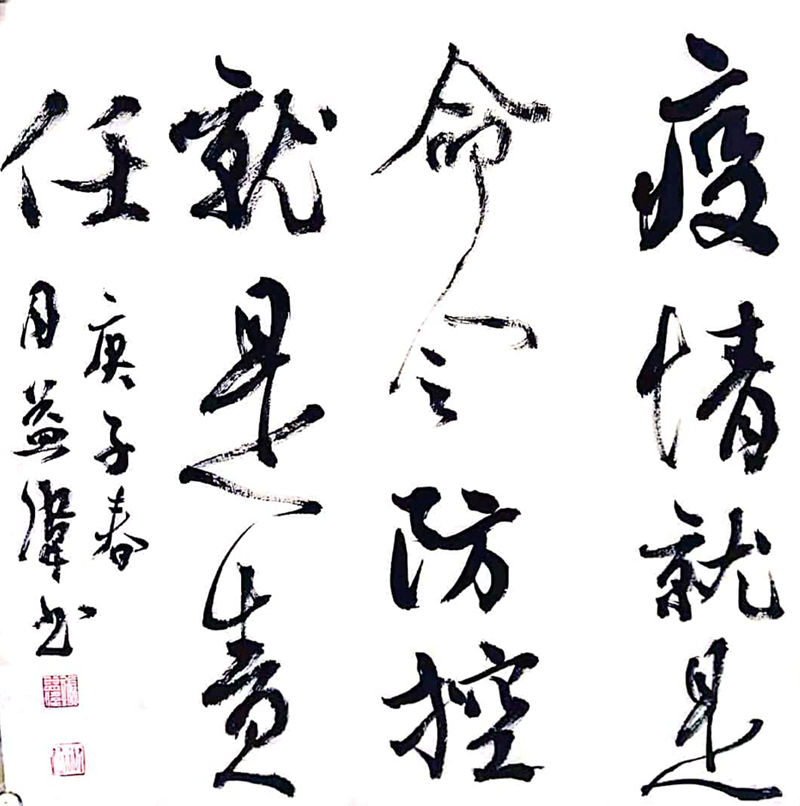 疫情就是
命令防控
就是责
任
庚子春
月益伟书